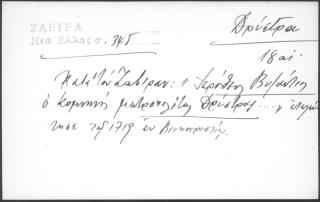 ΖΑΒΙΡΑ
Νέα Ἑλλάς σ. 345
Δρύστρα
18 αἰ.
Κατὰ τὸν Ζαβίραν: "Ἱερόθεος Βυζάντιος
ὁ Κομνηνὸς μητροπολίτης Δρύστρας ....,
τῷ 1719 ἐν Βουκουρεστίῳ.